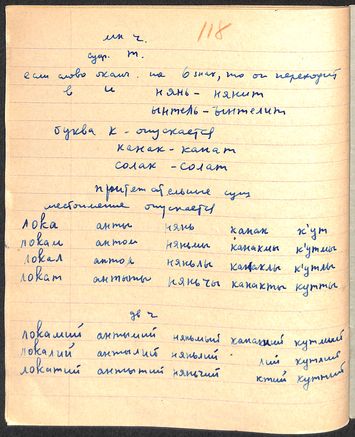 118
мн ч.
суф. т.
если слово оканч. на ь знак, то он переходит
в и нянь - нянит
ынтель - ынтелит
буква к - опускается
канак - канат
солак - солат
притяжательные сущ
местоимение опускается
лова анты нянь канак к'ут
ловам антом няньмы канакмы к'утмы
ловал антол няньлы канаклы к'утлы
ловат антыты няньчы канакты кутты
дв ч
ловамий антымий няньмый канакмий кутмый
ловалий антылий няньлый лий кутлий
ловатий антытий няньчий ктий куттый